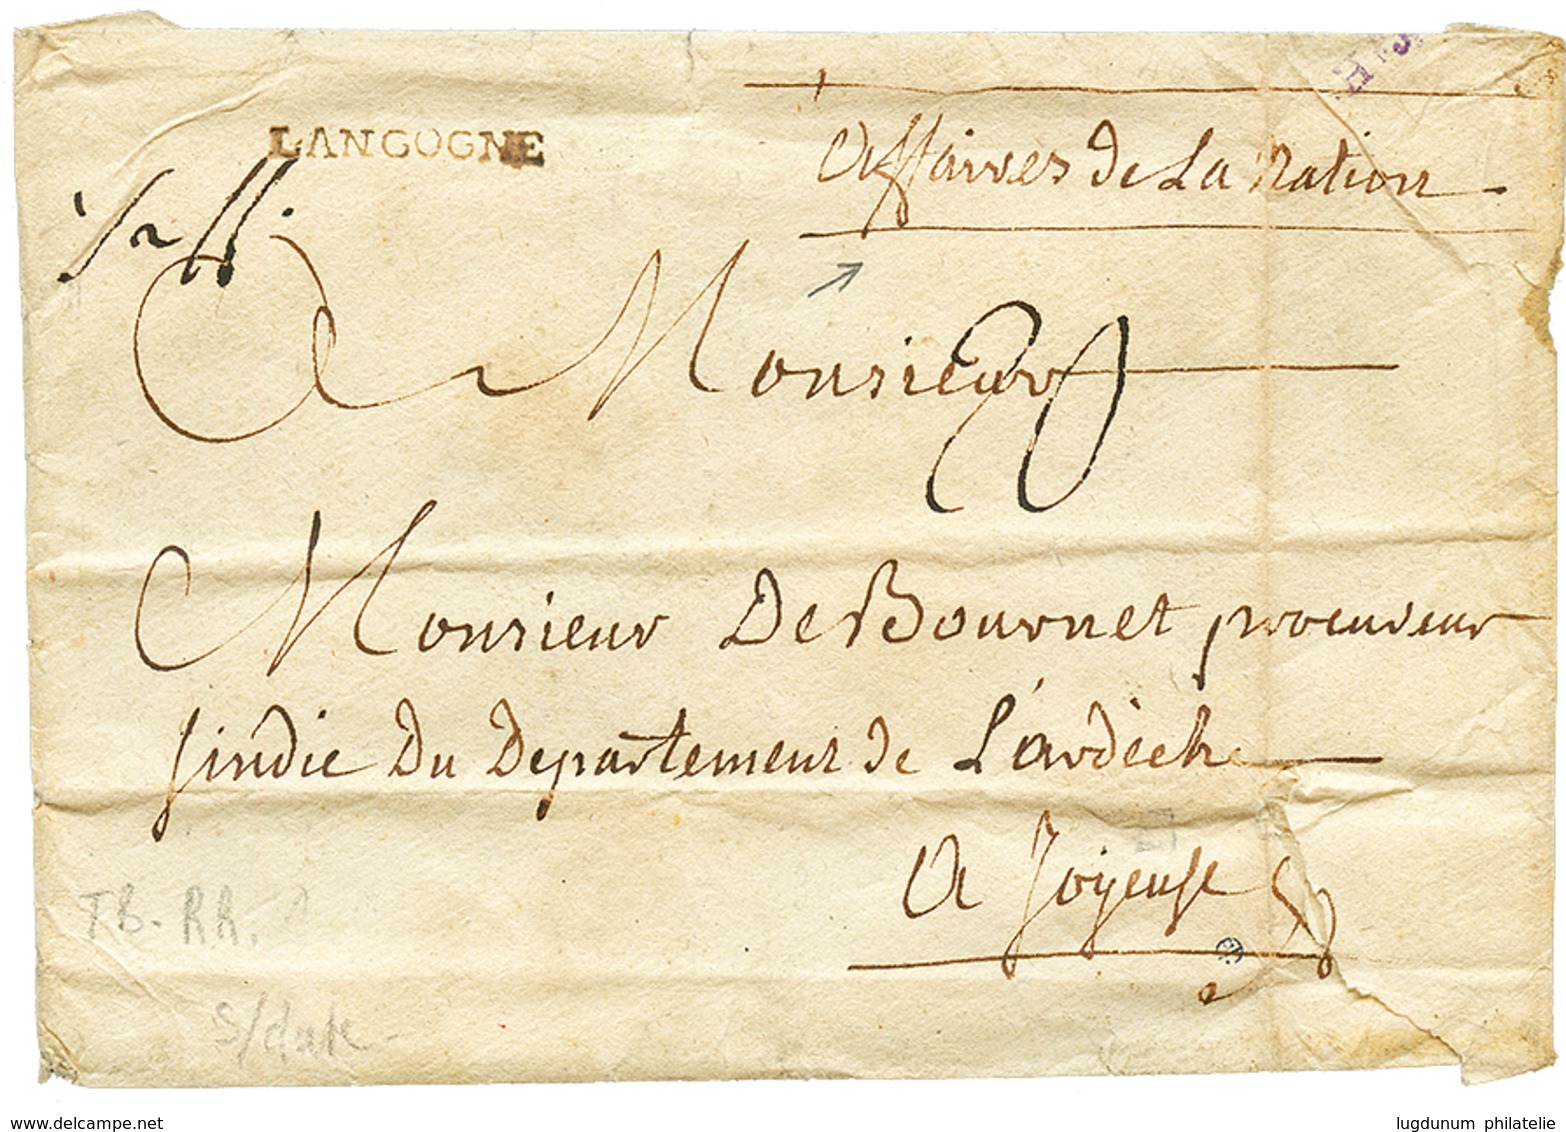 LANGOGNE
Affaires de La Nation
A Monsieur
20
Monsieur De Bournet procureur
sindic Du Departement de L'ardèche
A Joyeuse
TB - RR.
s/date -
www.delcampe.net
lugdunum philatelie